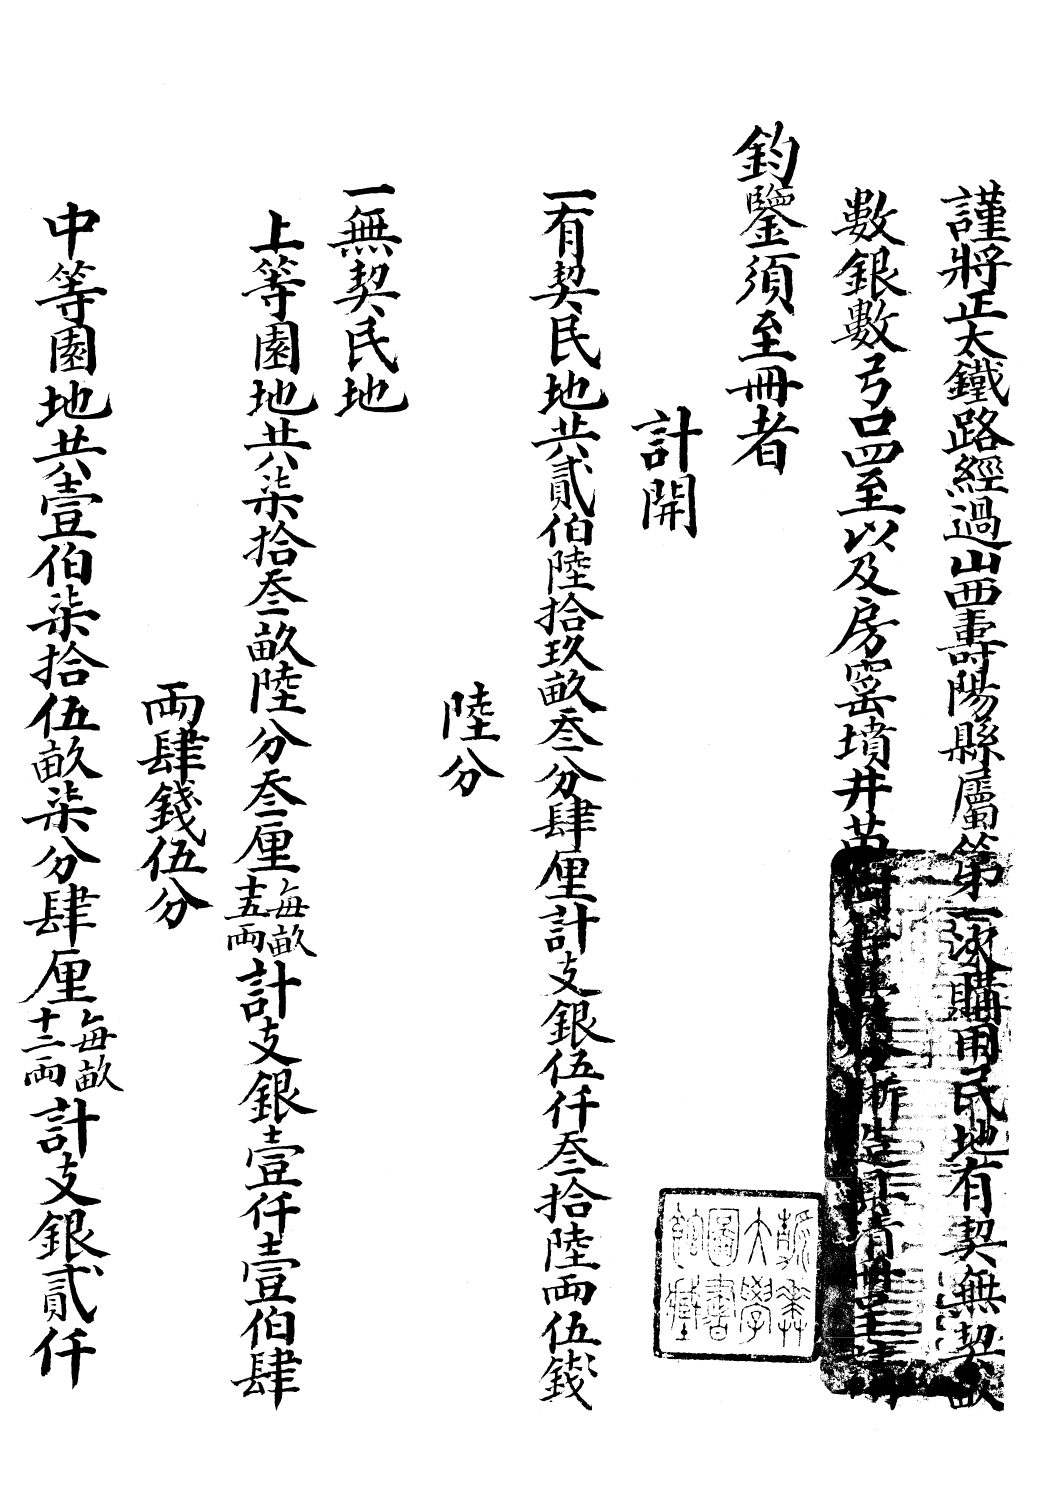 謹將正太鐵路經過山西壽陽縣屬第一次購用民地有契無契畝
數銀數弓口四至以及房窰墳井苗樹等項分晰造具清冊呈請
鈞鑒須至冊者
計開
一有契民地共貳伯陸拾玖畝叁分肆厘計支銀伍仟叁拾陸兩伍錢
陸分
一無契民地
上等園地共柒拾叁畝陸分叁厘每畝十五兩計支銀壹仟壹伯肆
兩肆錢伍分
中等園地共壹伯柒拾伍畝柒分肆厘每畝十二兩計支銀貳仟
大學
圖書
館藏